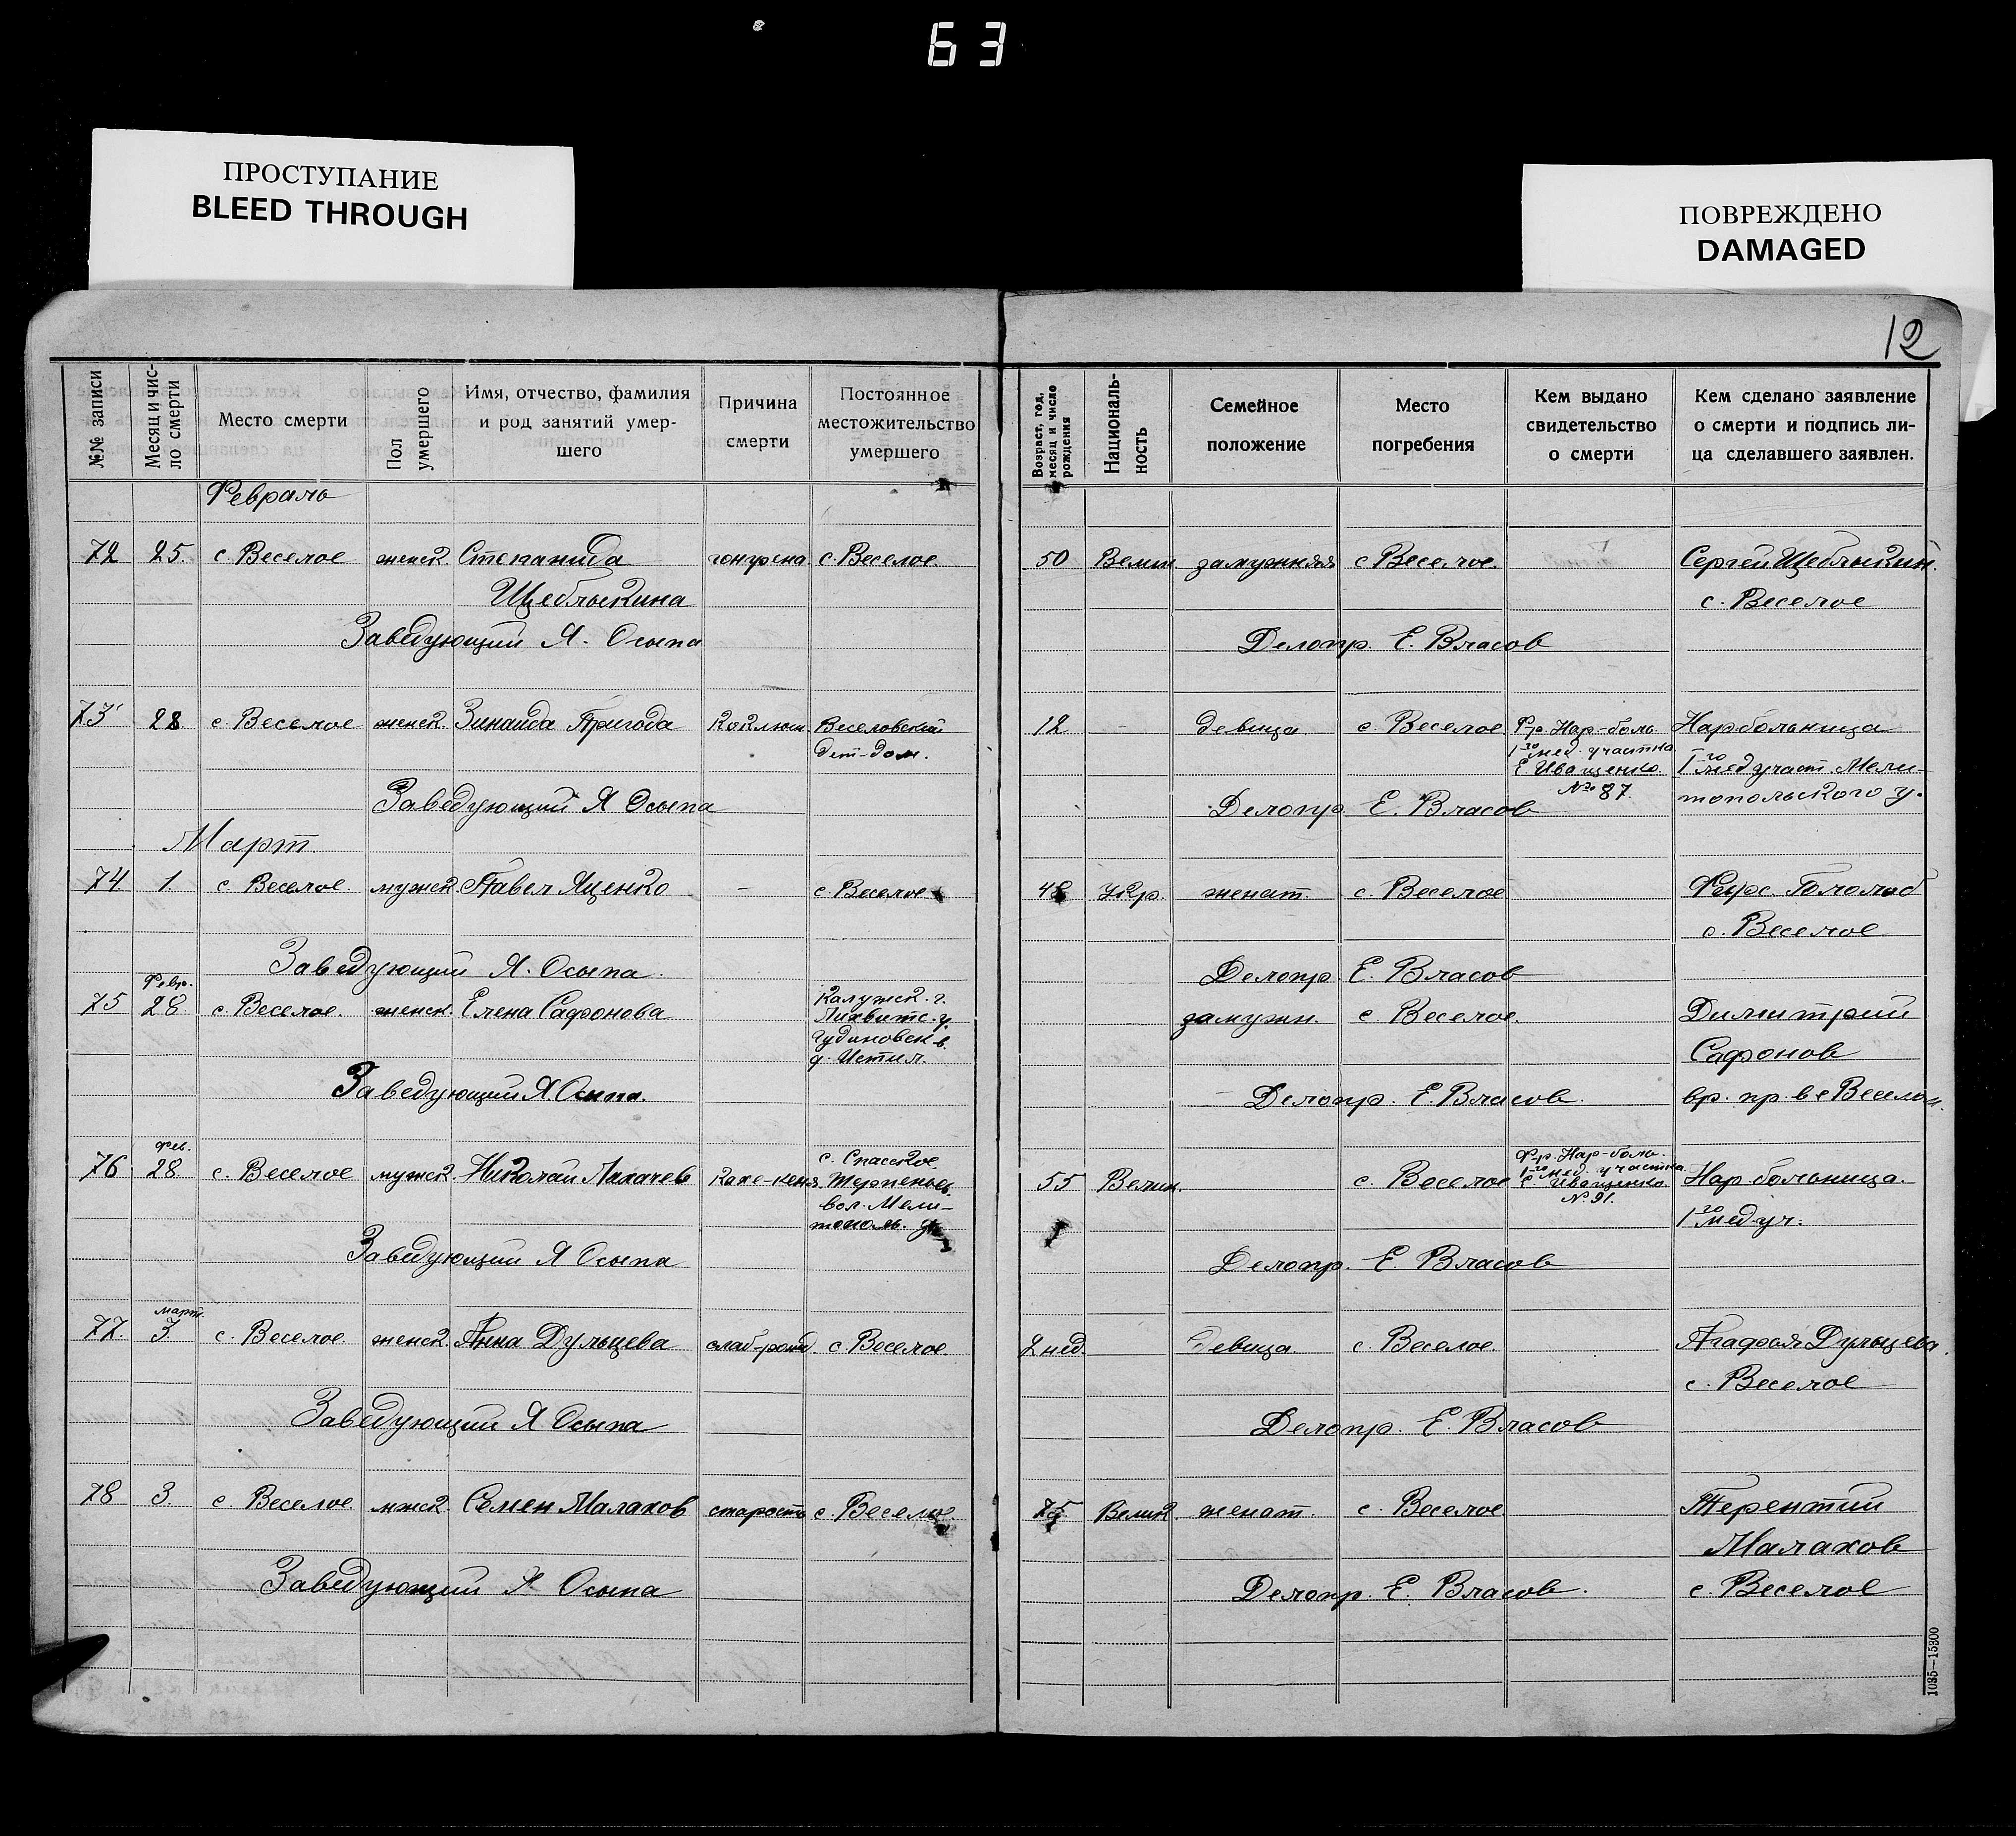 63
ПРОСТУПАНИЕ
BLEED THROUGH
ПОВРЕЖДЕНО
DAMAGED
12
№№ записи
Месяц и чис-
ло смерти
Место смерти
Пол
умершего
Имя, отчество, фамилия
и род занятий умер-
шего
Причина
смерти
Постоянное
местожительство
умершего
Возраст, год,
месяц и число
рождения
Националь-
ность
Семейное
положение
Место
погребения
Кем выдано
свидетельство
о смерти
Кем сделано заявление
о смерти и подпись ли-
ца сделавшего заявлен.
Февраль
72 25. с. Веселое женск. Степанида гонгрена с. Веселое. 50 Велик. замужняя с Веселое. Сергей Щеблыкин.
Щеблыкина с. Веселое
Заведующий Я. Осыпа Делопр. Е. Власов
73 28. с Веселое женск. Зинаида Пригода Коклюш Веселовский 12 - девица. с. Веселое Фр. Нар-боль. Нарбольница
дет-дом. 1го мед. участка 1го медучаст. Мели-
Е. Иващенко. топольского у.
№ 87.
Заведующий Я Осыпа Делопр Е. Власов
Март.
74 1. с. Веселое. мужск. Павел Яценко - с. Веселое Укр. женат. с. Веселое
с. Веселое
Заведующий Я. Осыпа. Делопр. Е. Власов
75 Февр. 28 с. Веселое. женск. Елена Сафонова Калужск. г. замужн. с Веселое. Димитрий
Лихвинс. у. Сафонов
в.
д.
Заведующий Я. Осыпа. Делопр. Е. Власов. вр. пр. в с Веселом.
76 Фев. 28. с. Веселое мужск. Николай с. Спасское 55 Велик. с. Веселое Фр. Нар-боль. Нар. больница.
вол. Мели- 1го мед. участка 1го мед уч.
тополь. у. Е Иващенко.
№ 91.
Заведующий Я Осыпа Делопр. Е Власов
77. март. 3. с. Веселое женск. Анна Дульцева слаб-рожд. с Веселое. 2 нед. девица. с. Веселое Агафья Дульцева.
с. Веселое
Заведующий Я Осыпа Делопр. Е. Власов
78 3. с. Веселое мжск. Семен Малахов старость с. Веселое. 75 Велик. женат. с. Веселое Терентий
Малахов
Заведующий Я Осыпа Делопр. Е. Власов. с. Веселое
1035—15300